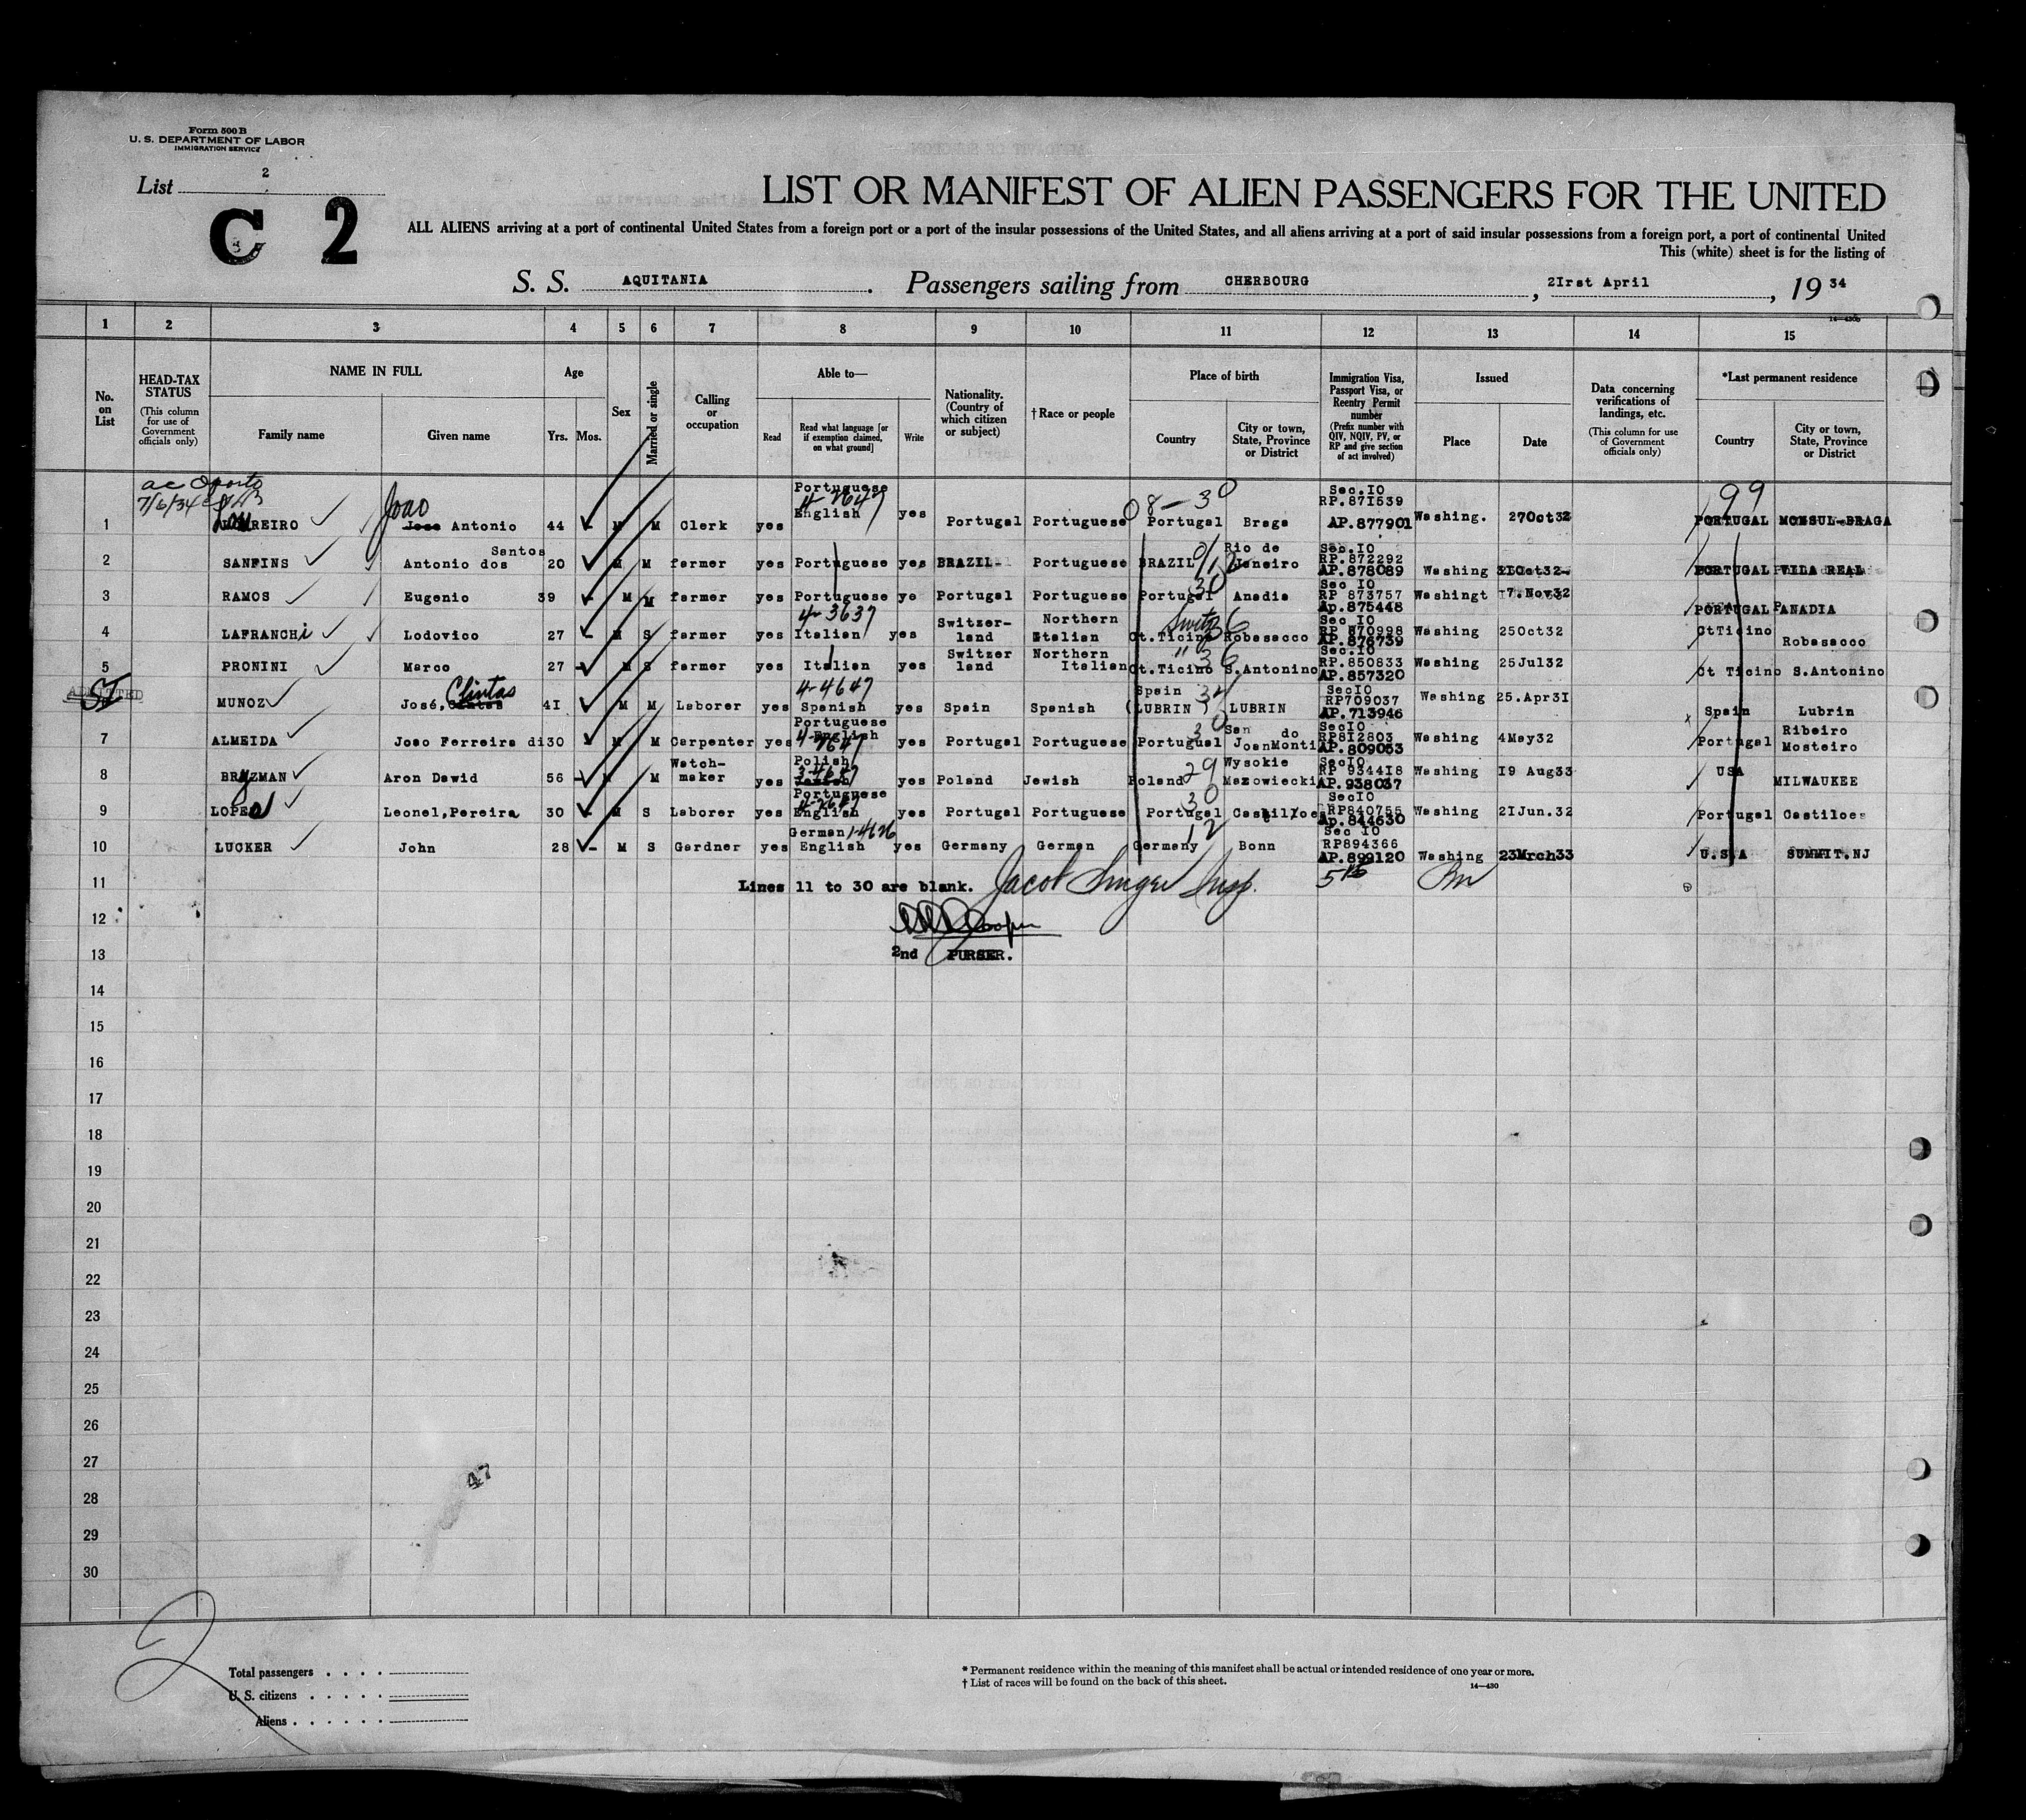 Form 500 B
U. S. DEPARTMENT OF LABOR
IMMIGRATION SERVICE
List 2
C 2
LIST OR MANIFEST OF ALIEN PASSENGERS FOR THE UNITED
ALL ALIENS arriving at a port of continental United States from a foreign port or a port of the insular possessions of the United States, and all aliens arriving at a port of said insular possessions from a foreign port, a port of continental United
This (white) sheet is for the listing of
S. S. AQUITANIA. Passengers sailing from CHERBOURG, 2Irst April, 19 34
1 2 3 4 5 6 7 8 9 10 11 12 13 14 15
No. on List
HEAD-TAX STATUS (This column for use of Government officials only)
NAME IN FULL Family name Given name
Age Yrs. Mos.
Sex
Married or single
Calling or occupation
Able to— Read Read what language [or if exemption claimed, on what ground] Write
Nationality. (Country of which citizen or subject)
† Race or people
Place of birth Country City or town, State, Province or District
Immigration Visa, Passport Visa, or Reentry Permit number (Prefix number with QIV, NQIV, PV, or RP and give section of act involved)
Issued Place Date
Data concerning verifications of landings, etc. (This column for use of Government officials only)
*Last permanent residence Country City or town, State, Province or District
7/6/34
1 Joao Antonio 44 M M Clerk yes Portuguese English yes Portugal Portuguese 08-30 Portugal Braga Sec.IO RP.871539 AP.877901 Washing. 27Oct32 99 PORTUGAL MONSUL-BRAGA
2 SANFINS Antonio dos Santos 20 M M farmer yes Portuguese yes BRAZIL- Portuguese BRAZIL Rio de Janeiro Sec.IO RP.872292 AP.878089 Washing PORTUGAL VILA REAL
3 RAMOS Eugenio 39 - M M farmer yes Portuguese ye Portugal Portuguese Portugal 30 Anadia Sec IO RP 873757 Ap.875448 Washingt 7.Nov32 PORTUGAL ANADIA
4 LAFRANCHi Lodovico 27 M S farmer yes 4-3637 Italian yes Switzer-land Northern Italian Ct.Ticino Switz 36 Robasacco Sec IO RP 870998 AP.876739 Washing 25Oct32 CtTicino Robasacco
5 PRONINI Marco 27 M S farmer yes Italian yes Switzer land Northern Italian Ct.Ticino " 36 S.Antonino Sec.IO RP.850833 AP.857320 Washing 25Jul32 Ct Ticino S.Antonino
ADMITTED SI
MUNOZ José, Clintas 4I M M Laborer yes 4-4647 Spanish yes Spain Spanish Spain 34 (LUBRIN) LUBRIN SecIO RP709037 AP.713946 Washing 25.Apr3I Spain Lubrin
7 ALMEIDA Joao Ferreira di 30 M M Carpenter yes Portuguese English yes Portugal Portuguese Portugual 30 San Joan do Monti SecIO RP8I2803 AP.809053 Washing 4May32 Portugal Ribeiro Mosteiro
8 BRyZMAN Aron Dawid 56 M M Watch-maker yes Polish yes Poland Jewish Poland 29 Wysokie Mazowiecki SecIO RP 9344I8 AP.938037 Washing I9 Aug33 USA MILWAUKEE
9 LOPEs Leonel,Pereira 30 M S Laborer yes Portuguese English yes Portugal Portuguese Portugal 30 SecIO RP840755 Ap.844630 Washing 2IJun.32 Portugal Castiloes
10 LUCKER John 28 - M S Gardner yes German English yes Germany German Germany 12 Bonn Sec IO RP894366 AP.899120 Washing 23Mrch33 U.S.A SUMMIT.NJ
11 Lines 11 to 30 are blank. Jacob Singer Insp.
12
13 2nd PURSER.
14
15
16
17
18
19
20
21
22
23
24
25
26
27
47
28
29
30
2
Total passengers . . . .
U. S. citizens . . . . .
Aliens . . . . . .
* Permanent residence within the meaning of this manifest shall be actual or intended residence of one year or more.
† List of races will be found on the back of this sheet.
14—430